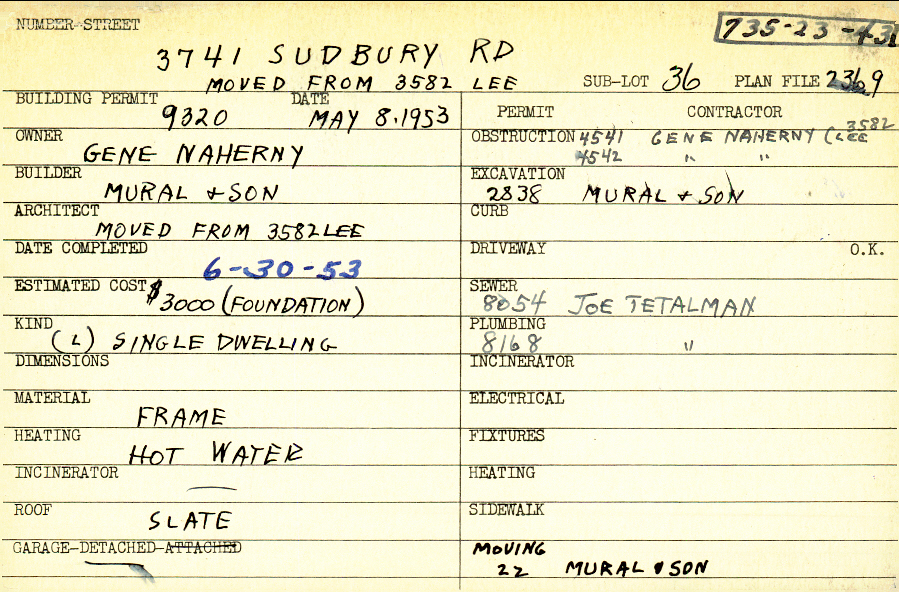 NUMBER-STREET
735-23-43
3741 SUDBURY RD
MOVED FROM 3582 LEE SUB-LOT 36 PLAN FILE 2369
BUILDING PERMIT DATE
9320 MAY 8, 1953
OWNER
GENE NAHERNY
BUILDER
MURAL & SON
ARCHITECT
MOVED FROM 3582 LEE
DATE COMPLETED
6-30-53
ESTIMATED COST $3000 (FOUNDATION)
KIND
(L) SINGLE DWELLING
DIMENSIONS
MATERIAL
FRAME
HEATING
HOT WATER
INCINERATOR
—
ROOF
SLATE
GARAGE-DETACHED-ATTACHED
PERMIT CONTRACTOR
OBSTRUCTION 4541 GENE NAHERNY (3582 LEE
4542 " "
EXCAVATION
2838 MURAL & SON
CURB
DRIVEWAY O.K.
SEWER
8054 JOE TETALMAN
PLUMBING
8168 "
INCINERATOR
ELECTRICAL
FIXTURES
HEATING
SIDEWALK
MOVING
22 MURAL & SON